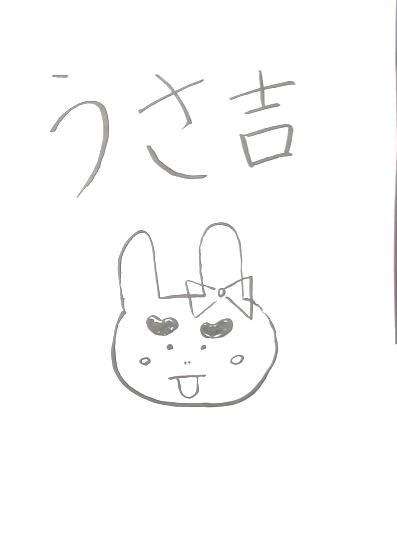 うさ吉